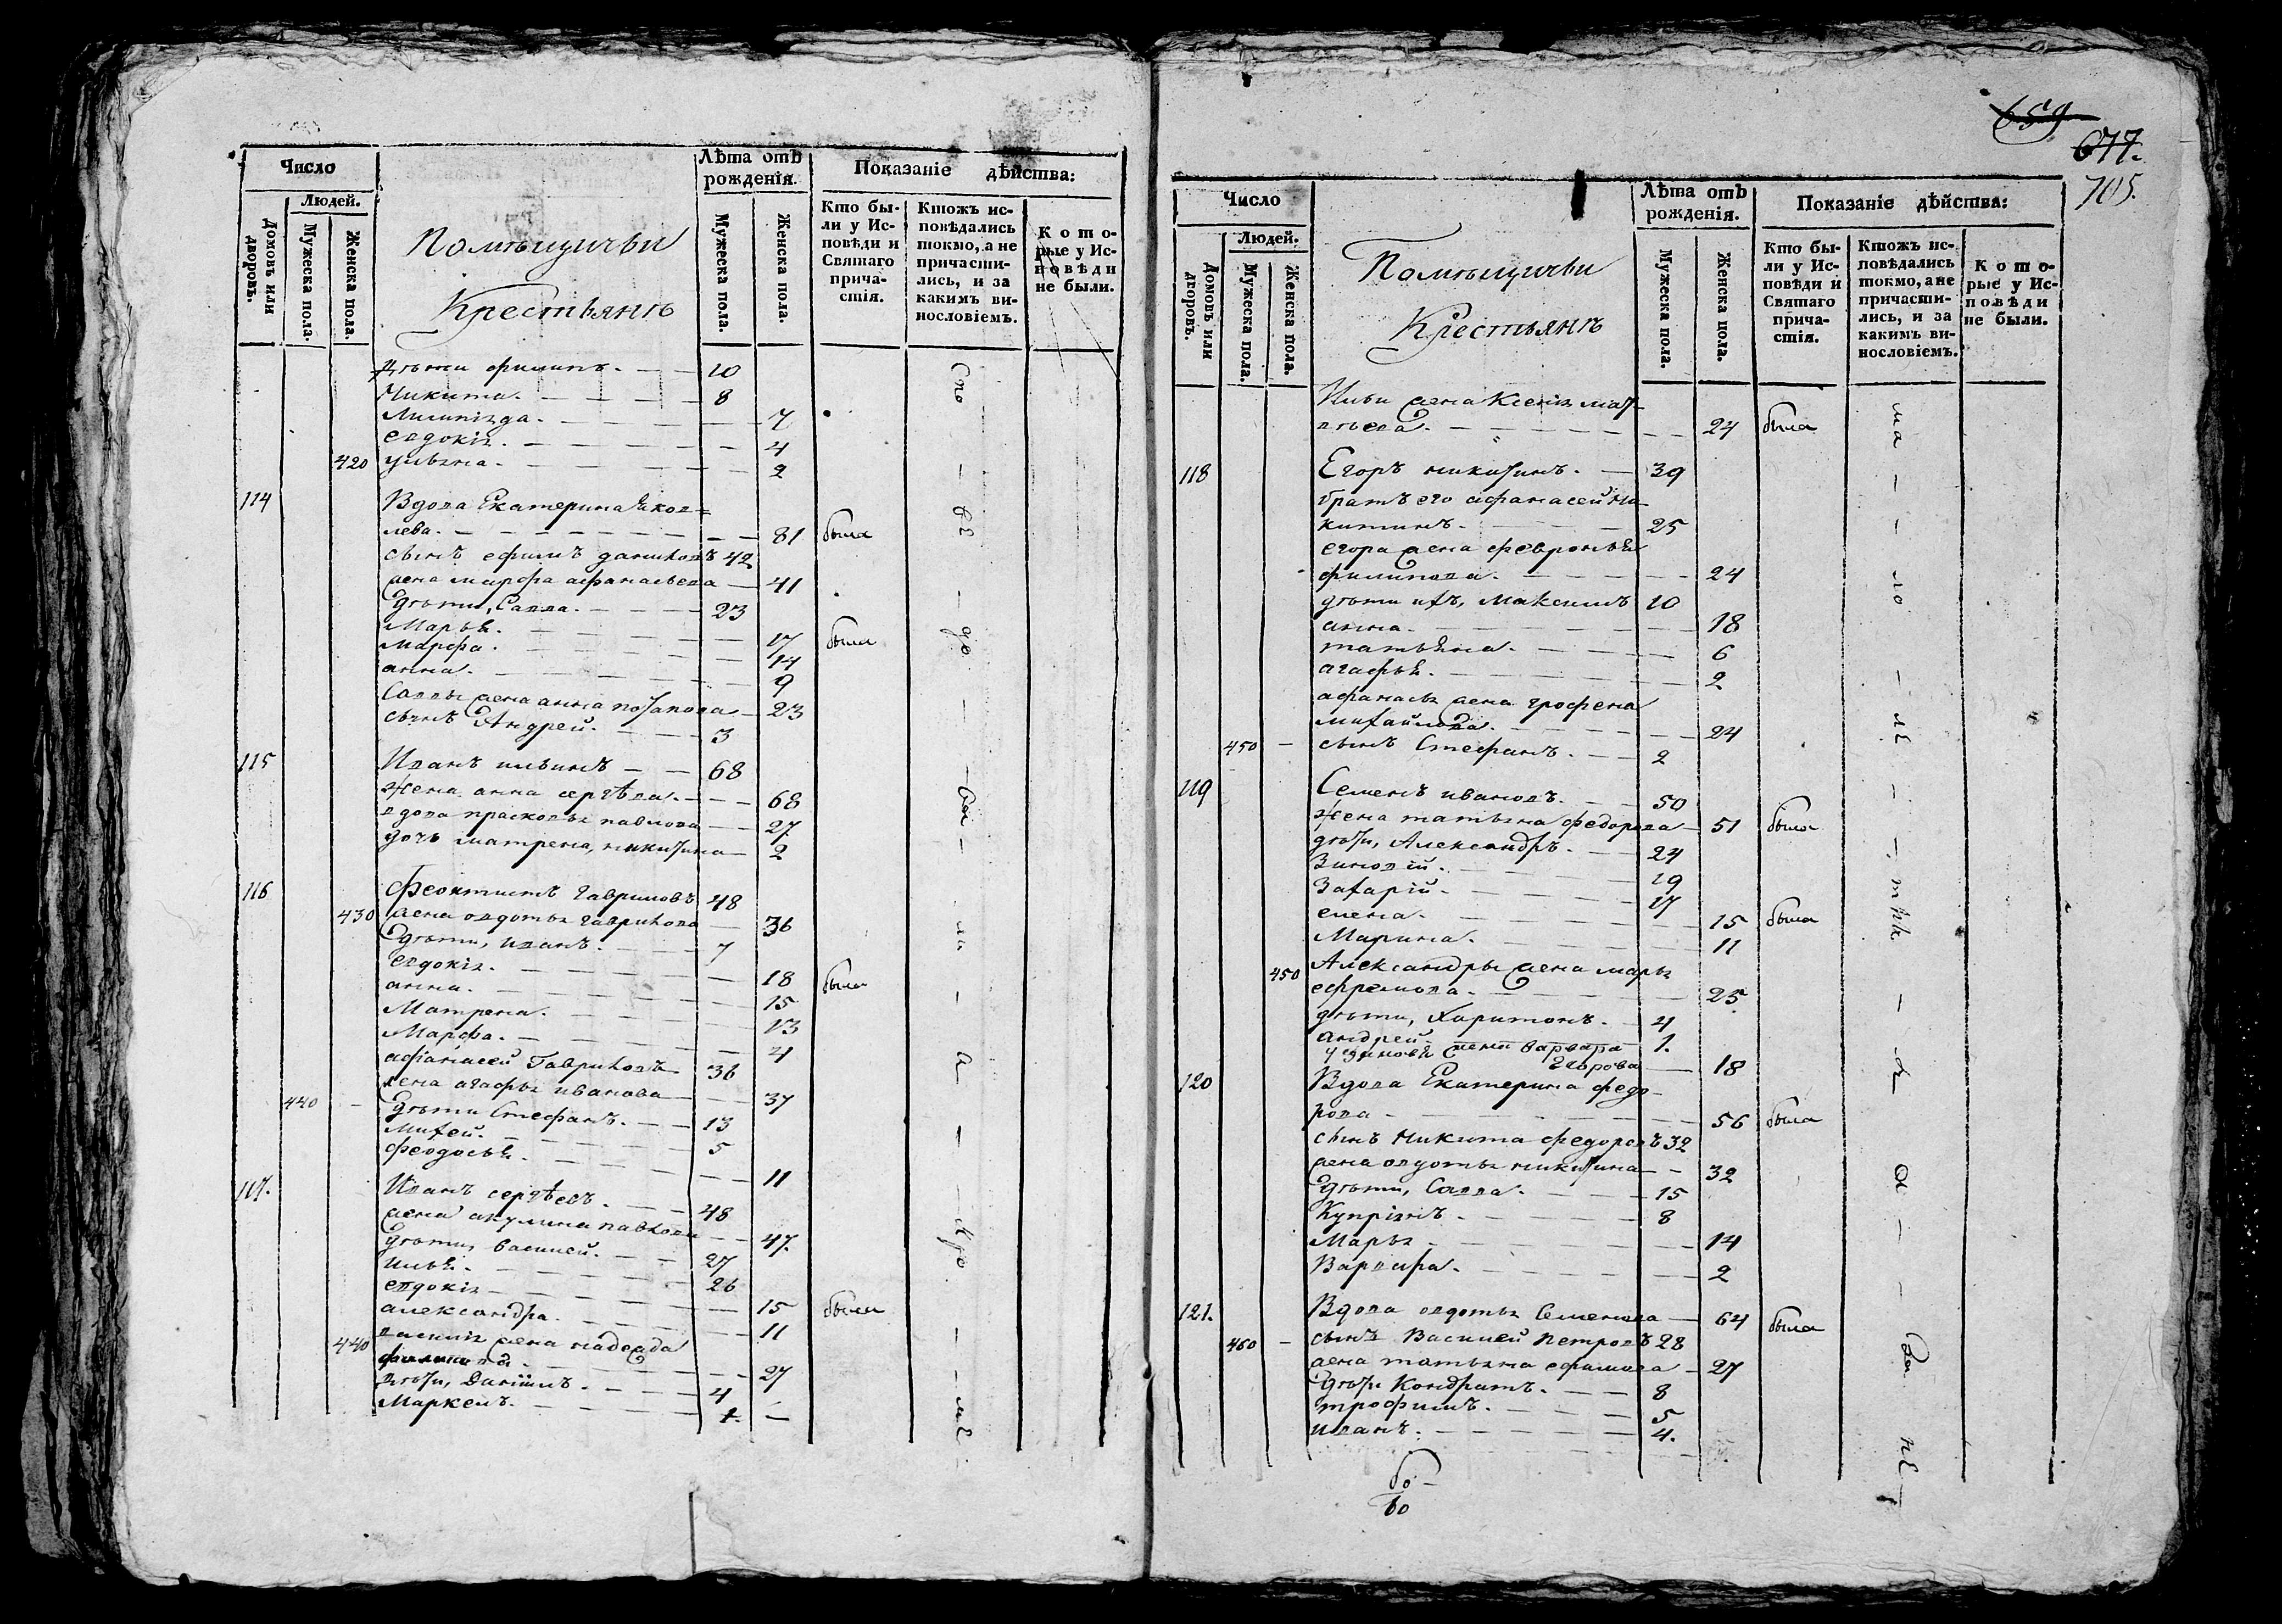 Число
Лѣта отъ рожденія.
Показаніе дѣйства:
Людей.
Домовъ или дворовъ.
Мужеска пола.
Женска пола.
Помѣщичьи
Крестьянѣ
Мужеска пола.
Женска пола.
Кто бы-
ли у Ис-
повѣди и
Святаго
прича-
стія.
Ктожъ ис-
повѣдались
токмо, а не
причасти-
лись, и за
какимъ ви-
нословіемъ.
Кото-
рые у Ис-
повѣди
не были.
Дѣти филипъ. 10
Никита. 8
7
евдокія. 4
420 ульяна. 2
114 Вдова Екатерина Яков=
лева. 81 была
сынъ ефимъ даниловъ 42
жена марфа афанасьева 41
Дѣти, Савва. 23
Марья. 17 была
Марфа. 14
анна. 9
Саввы жена анна потапова 23
сынъ Андрей. 3
115 Иванъ ильинъ 68
Жена анна сергѣева. 68
вдова прасковья павлова 27
дочь матрена, никитина 2
116 Феоктистъ гавриловъ 48
430 жена овдотья гаврилова 36
Дѣти, иванъ. 7
евдокія. 18 была
анна. 15
Матрена. 13
Марфа. 4
афанасей Гавриловъ 36
жена агафья иванова 37
440 Дѣти Стефанъ. 13
Михей. 5
феодосья. 11
117. Иванъ сергѣевъ. 48
жена акулина павлова 47.
Дѣти, василей. 27
илья. 26
евдокія 15 была
александра. 11
440 василія жена надежда
филипова. 27
дѣти, Даніилъ. 4
Маркелъ. 1.
659
677.
705.
Число
Лѣта отъ рожденія.
Показаніе дѣйства:
Людей.
Домовъ или дворовъ.
Мужеска пола.
Женска пола.
Помѣщичьи
Крестьянѣ
Мужеска пола.
Женска пола.
Кто бы-
ли у Ис-
повѣди и
Святаго
прича-
стія.
Ктожъ ис-
повѣдались
токмо, а не
причасти-
лись, и за
какимъ ви-
нословіемъ.
Кото-
рые у Ис-
повѣди
не были.
Ильи жена Ксенія мат-
вѣева. 24 была
118 Егоръ никитинъ. 39
братъ его афанасей Ни-
китинъ. 25
егора жена февронья
филипова. 24
дѣти ихъ, Максимъ 10
анна. 18
татьяна. 6
агафья. 2
афанасья жена грофена
михайлова. 24
450 сынъ Стефанъ. 2
119 Семенъ ивановъ. 50
Жена татьяна федорова 51 была
дѣти, Александръ. 24
Зиновій. 19
Захарій. 17
елена. 15 была
Марина. 11
450 Александры жена марья
ефремова. 25
дѣти, Харитонъ. 4
андрей. 1.
у зиновья жена варвара
Егорова 18
120 Вдова Екатерина федо-
рова 56 была
сынъ Никита федоровъ 32
жена овдотья никитина 32
Дѣти, Савва. 15
Купріянъ. 8
Марья 14
Варвара. 2
121. Вдова овдотья Семенова 64 была
460 сынъ Василей петровъ 28
жена татьяна ефимова 27
Дѣти Кондратъ. 8
трофимъ. 5
иванъ. 4.